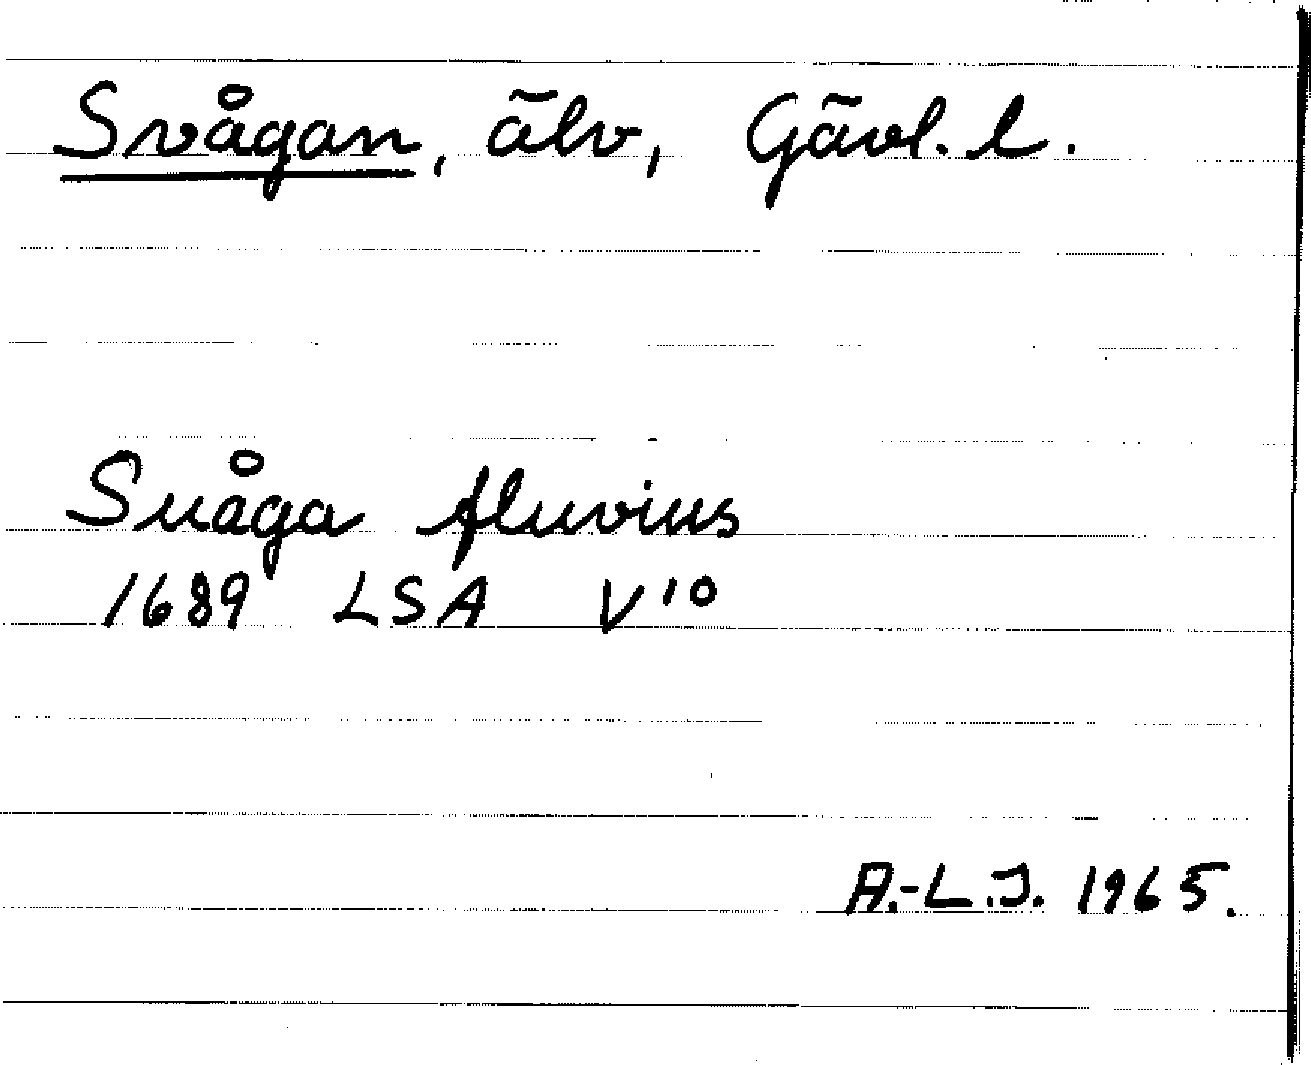 Svågan, älv, Gävl. l.
Suåga fluvius
1689 LSA V10
A.-L.J. 1965.